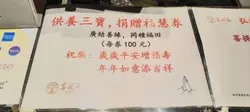 供養三寶，捐贈福慧券
廣結善緣，同種福田
(每券100元)
祝願：歲歲平安增福壽
年年如意添吉祥